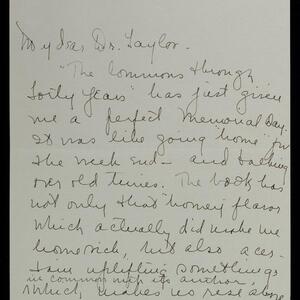 My dear Dr. Taylor -
"The Commons through
Forty Years" has just given
me a perfect Memorial Day.
It was like going "home" for
the week end - and talking
over old times. The book has
not only that homey flavor
which actually did make me
homesick, but also a cer-
tain uplifting something
in common with its author
which makes us rise above